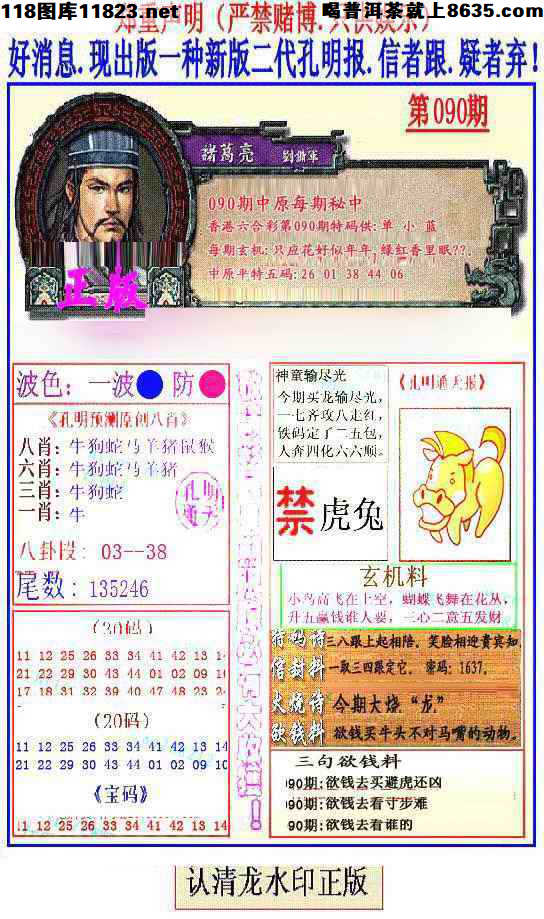 118图库11823.net
喝普洱茶就上8635.com
好消息.现出版一种新版二代孔明报.信者跟.疑者弃!
第090期
諸葛亮
劉鐵軍
090期中原每期秘中
香港六合彩第090期特码供:单 小 蓝
每期玄机:只应花好似年年,绿红香里眠??.
中原平特五码:26 01 38 44 06
正版
波色：一波 防
《孔明预测原创八肖》
八肖：牛狗蛇马羊猪鼠猴
六肖：牛狗蛇马羊猪
三肖：牛狗蛇
一肖：牛
八卦段：03--38
尾数：135246
(30码)
11 12 25 26 33 34 41 42 13 1
21 22 29 30 43 44 01 02 09 1
17 18 31 32 39 40 47 48 23 2
(20码)
11 12 25 26 33 34 41 42 13 14
21 22 29 30 43 44 01 02 09 10
《宝码》
11 12 25 26 33 34 41 42 13 14
神童输尽光
今期买龙输尽光,
一七齐攻八走红,
铁码定了二五包,
人奔四化六六顺。
《孔明通天报》
禁 虎兔
玄机料
小鸟高飞在上空，蝴蝶飞舞在花丛,
升五赢钱谁人要，三心二意五发财
特码诗
三八跟上起相陪，笑脸相迎贵宾知,
一取三四跟定它。密码：1637。
火烧诗
今期大烧“龙”
欲钱料
欲钱买牛头不对马嘴的动物。
三句欲钱料
090期:欲钱去买避虎还凶
090期:欲钱去看寸步难
090期:欲钱去看谁的
认清龙水印正版